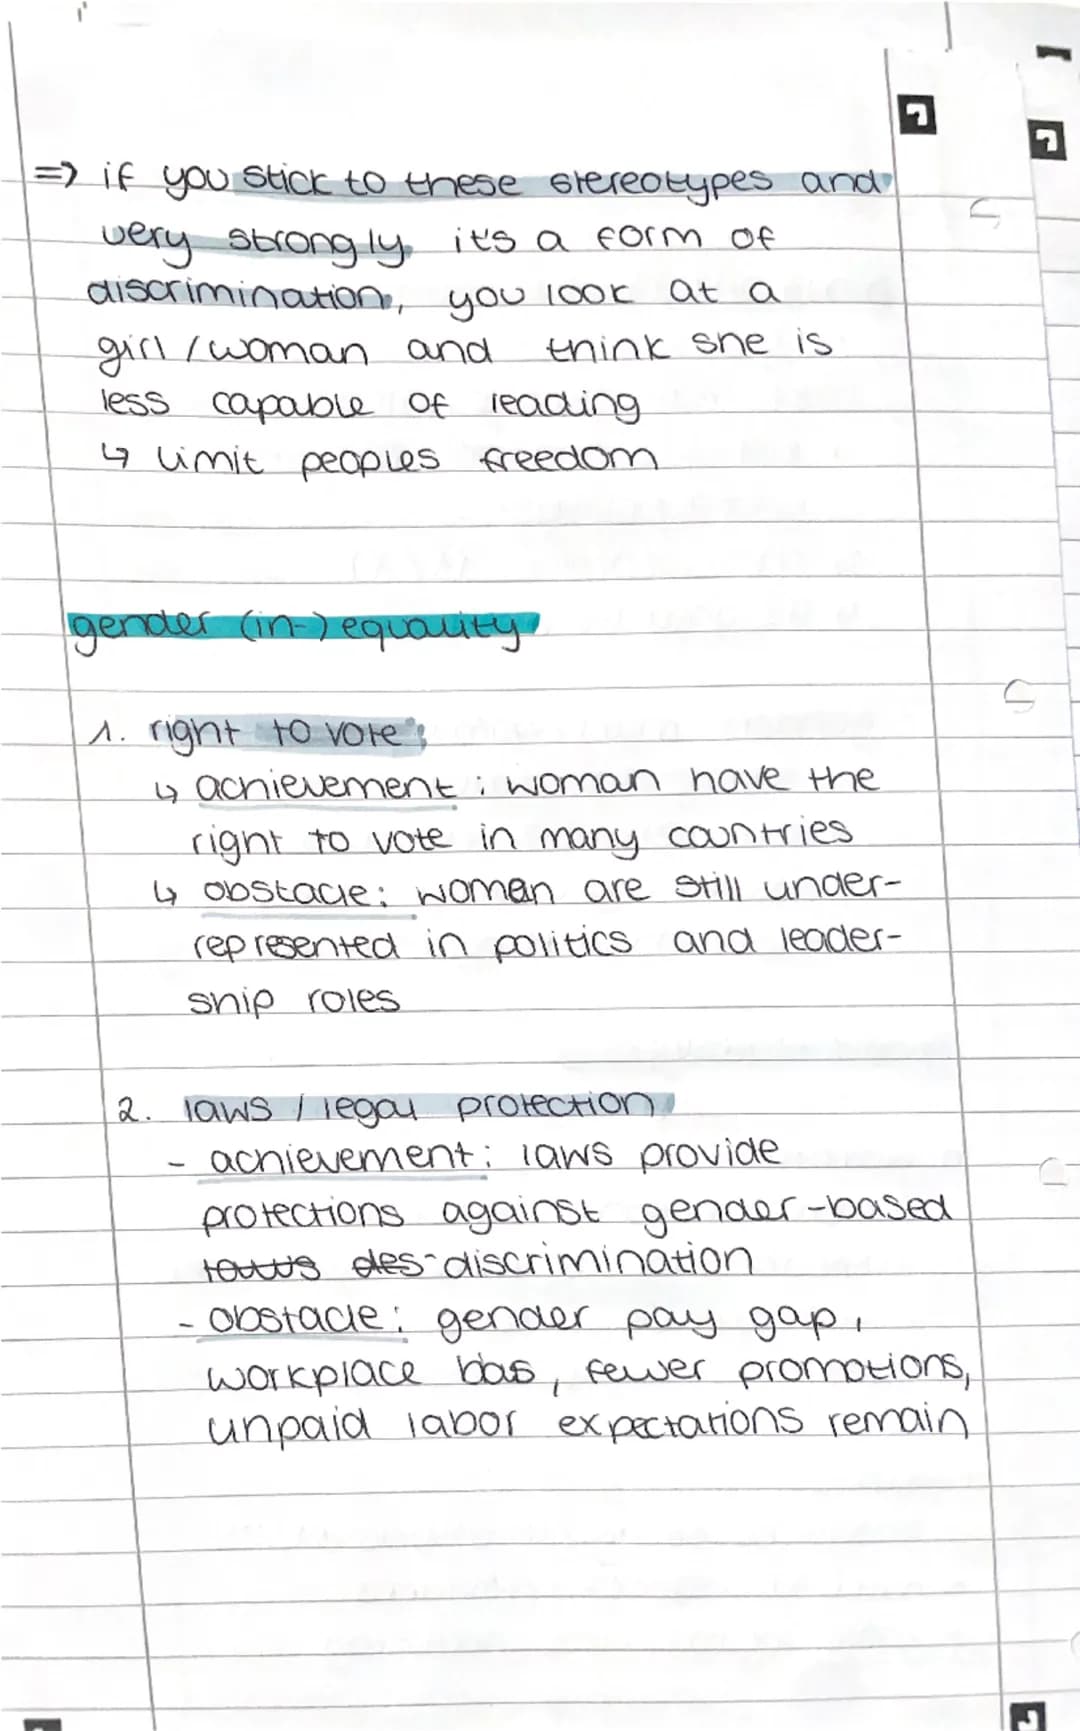 => if you stick to these stereotypes and
very strongly it's a form of
discrimination, you look at a
girl / woman and think she is
less capable of leading
↳ limit peoples freedom
gender (in-) equality
1. right to vote:
↳ achievement: woman have the
right to vote in many countries
↳ obstacle: women are still under-
represented in politics and leader-
ship roles
2. laws / legal protection
- achievement: laws provide
protections against gender-based
laws des-discrimination
- obstacle: gender pay gap,
workplace bias, fewer promotions,
unpaid labor expectations remain